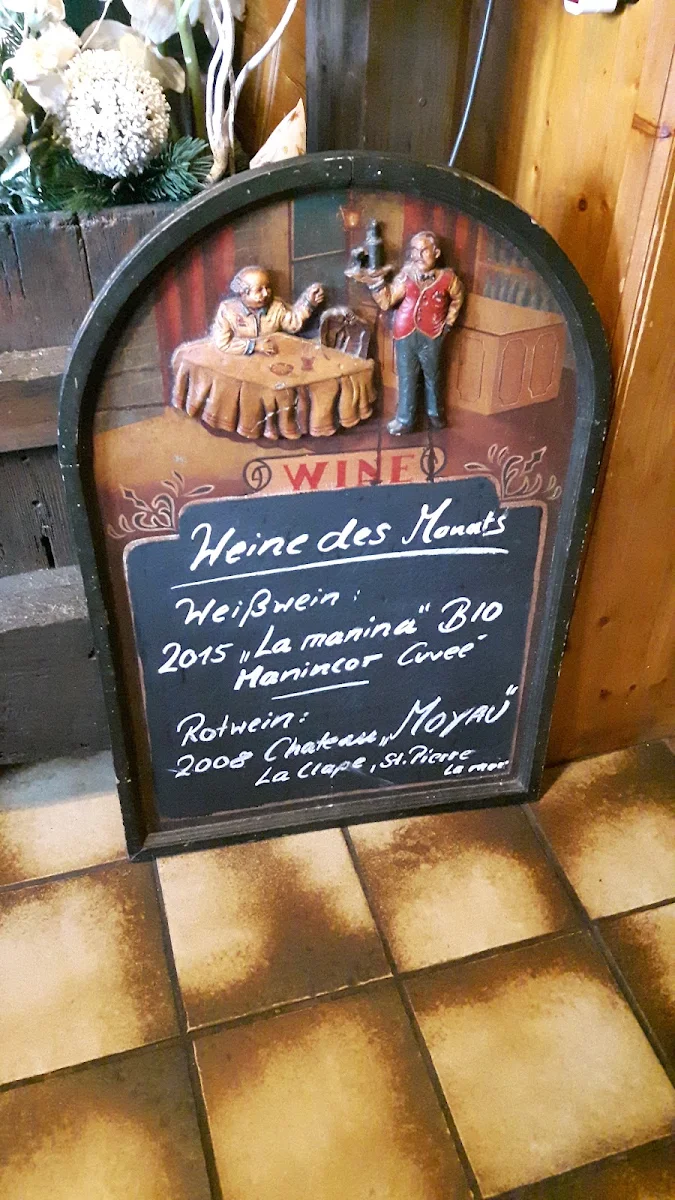 WINE
Weine des Monats
Weißwein:
2015 „La manina" BIO
Manincor Cuveé
Rotwein:
2008 Chateau „MOYAU"
La Clape, St. Pierre
La mer